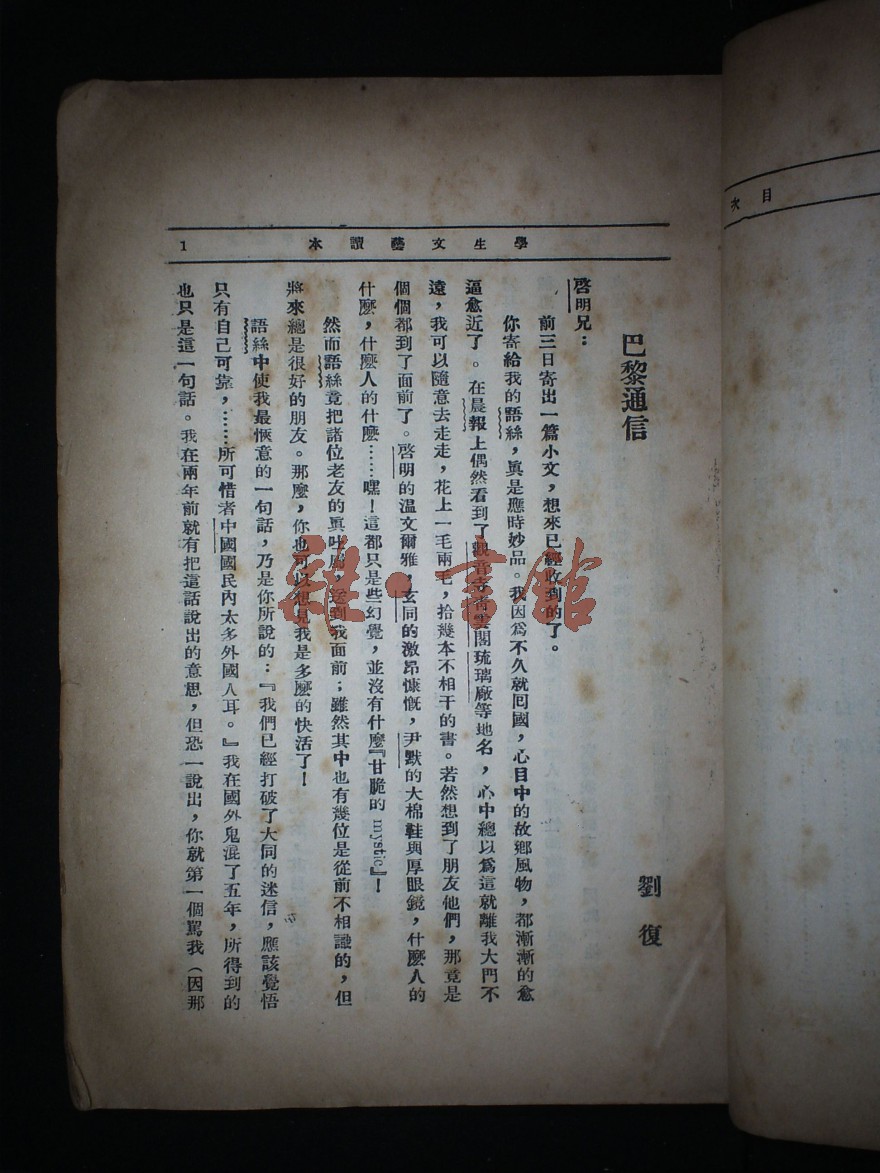 學生文藝讀本
1
巴黎通信
劉復
啓明兄：
前三日寄出一篇小文，想來已經收到的了。
你寄給我的語絲，眞是應時妙品。我因爲不久就囘國，心目中的故鄉風物，都漸漸的愈
逼愈近了。在晨報上偶然看到了觀音寺靑雲閣琉璃廠等地名，心中總以爲這就離我大門不
遠，我可以隨意去走走，花上一毛兩毛，拾幾本不相干的書。若然想到了朋友他們，那竟是
個個都到了面前了。啓明的溫文爾雅，玄同的激昂慷慨，尹默的大棉鞋與厚眼鏡，什麼人的
什麼，什麼人的什麼……嘿！這都只是些幻覺，並沒有什麼『甘脆的mystic』！
然而語絲竟把諸位老友的眞吐屬，送到我面前；雖然其中也有幾位是從前不相識的，但
將來總是很好的朋友。那麼，你也可以想見我是多麼的快活了！
語絲中使我最愜意的一句話，乃是你所說的：『我們已經打破了大同的迷信，應該覺悟
只有自己可靠，……所可惜者中國國民內太多外國人耳。』我在國外鬼混了五年，所得到的
也只是這一句話。我在兩年前就有把這話說出的意思，但恐一說出，你就第一個駡我（因那
目次
雜·書館